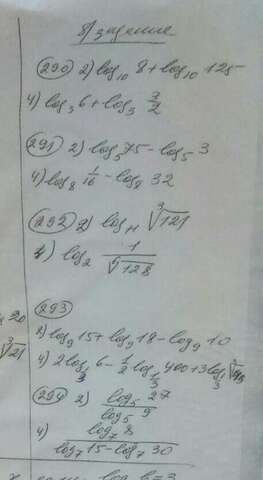 д/з задание
290 2) log₁₀ 8 + log₁₀ 125
4) log₃ 6 + log₃ 3/2
291 2) log₅ 75 - log₅ 3
4) log₈ 1/16 - log₈ 32
292 2) log₁₁ ∛121
4) log₂ 1/⁶√128
293
2) log₉ 15 + log₉ 18 - log₉ 10
4) 2log_{1/3} 6 - 1/2 log_{1/3} 400 + 3log_{1/3} ∛45
294 2) log₅ 27 / log₅ 9
4) log₇ 8 / (log₇ 15 - log₇ 30)